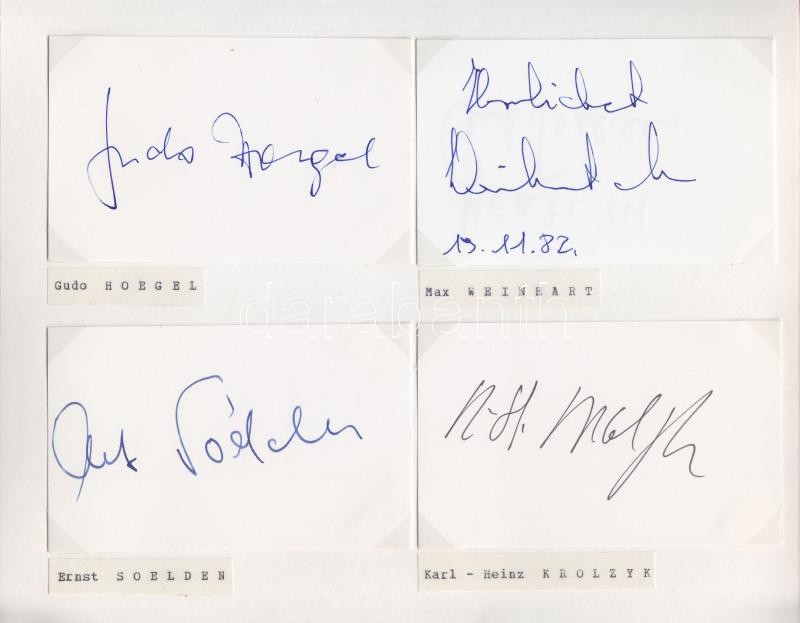 Gudo Hoegel
Gudo HOEGEL
Herzlichst
Weinhart
19.11.82.
Max WEINHART
darabanth
Ernst Soelden
Ernst SOELDEN
K.-H.
Karl - Heinz KROLZYK